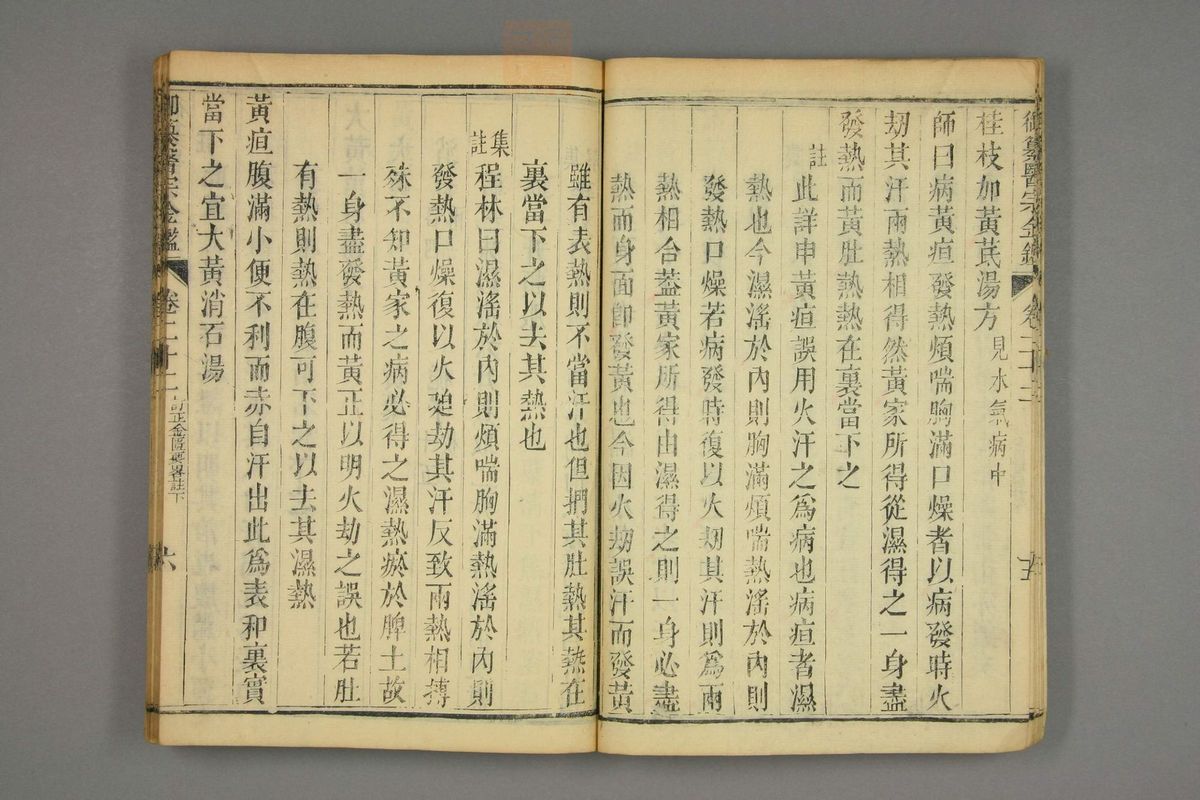 御纂醫宗金鑑 卷二十二 五
桂枝加黃芪湯方見水氣病中
師曰病黃疸發熱煩喘胸滿口燥者以病發時火
刧其汗兩熱相得然黃家所得從濕得之一身盡
發熱而黃肚熱熱在裏當下之
註此詳申黃疸誤用火汗之為病也病疸者濕
熱也今濕滛於內則胸滿煩喘熱滛於內則
發熱口燥若病發時復以火刧其汗則為兩
熱相合葢黃家所得由濕得之則一身必盡
熱而身面卽發黃也今因火刧誤汗而發黃
雖有表熱則不當汗也但捫其肚熱其熱在
裏當下之以去其熱也
集註程林曰濕滛於內則煩喘胸滿熱滛於內則
發熱口燥復以火廹劫其汗反致兩熱相搏
殊不知黃家之病必得之濕熱瘀於脾土故
一身盡發熱而黃正以明火劫之誤也若肚
有熱則熱在腹可下之以去其濕熱
黃疸腹滿小便不利而赤自汗出此爲表和裏實
當下之宜大黃消石湯
御纂醫宗金鑑 卷二十二 訂正金匱要畧註下 六